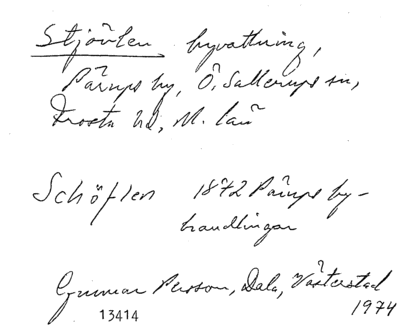 Stjövlen byvattning,
Pårups by, Ö. Sallerups sn,
Frosta hd, M. län
Schöflen 1872 Pårups by-
handlingar
Gunnar Persson, Dala, Västerstad
13414 1974